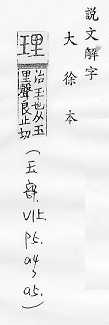 說文解字
大徐本
理
治玉也从玉
里聲良止切
（玉部．V1上．P5．a4～a5．）